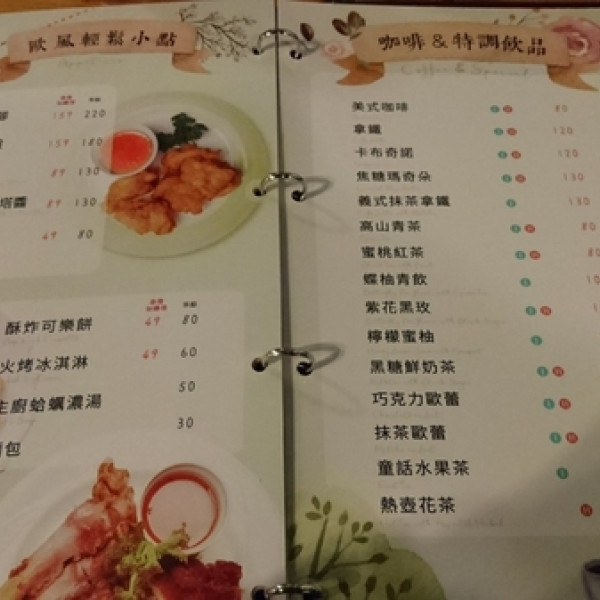 歐風輕鬆小點
Appetizers
159 220
159 180
89 130
塔醬 89 130
49 80
酥炸可樂餅 49 80
火烤冰淇淋 49 60
主廚蛤蠣濃湯 50
包 30
咖啡&特調飲品
Coffee & Special
美式咖啡 80
拿鐵 120
卡布奇諾 120
焦糖瑪奇朵 130
義式抹茶拿鐵 130
高山青茶 80
蜜桃紅茶 80
蝶柚青飲
紫花黑玫
檸檬蜜柚
黑糖鮮奶茶
巧克力歐蕾
抹茶歐蕾
童話水果茶
熱壺花茶